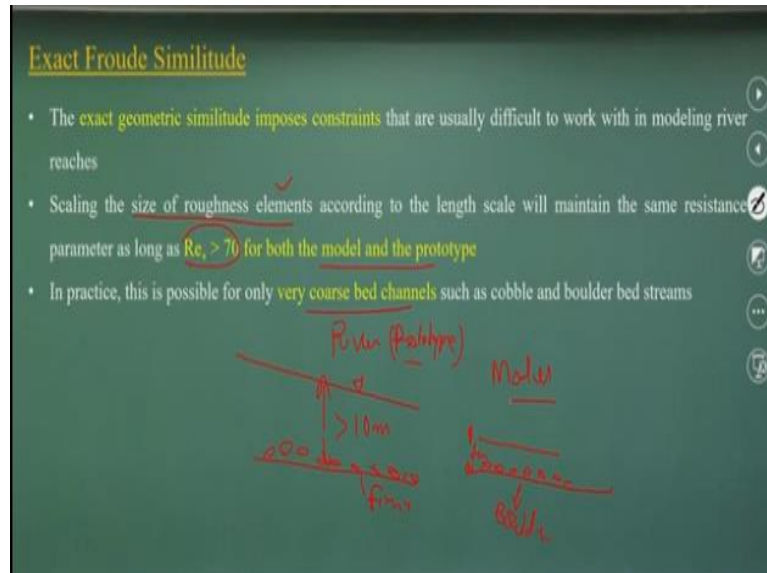 Exact Froude Similitude
• The exact geometric similitude imposes constraints that are usually difficult to work with in modeling river
reaches
• Scaling the size of roughness elements according to the length scale will maintain the same resistance
parameter as long as Re* > 70 for both the model and the prototype
• In practice, this is possible for only very coarse bed channels such as cobble and boulder bed streams
River (Prototype)
Model
>10m